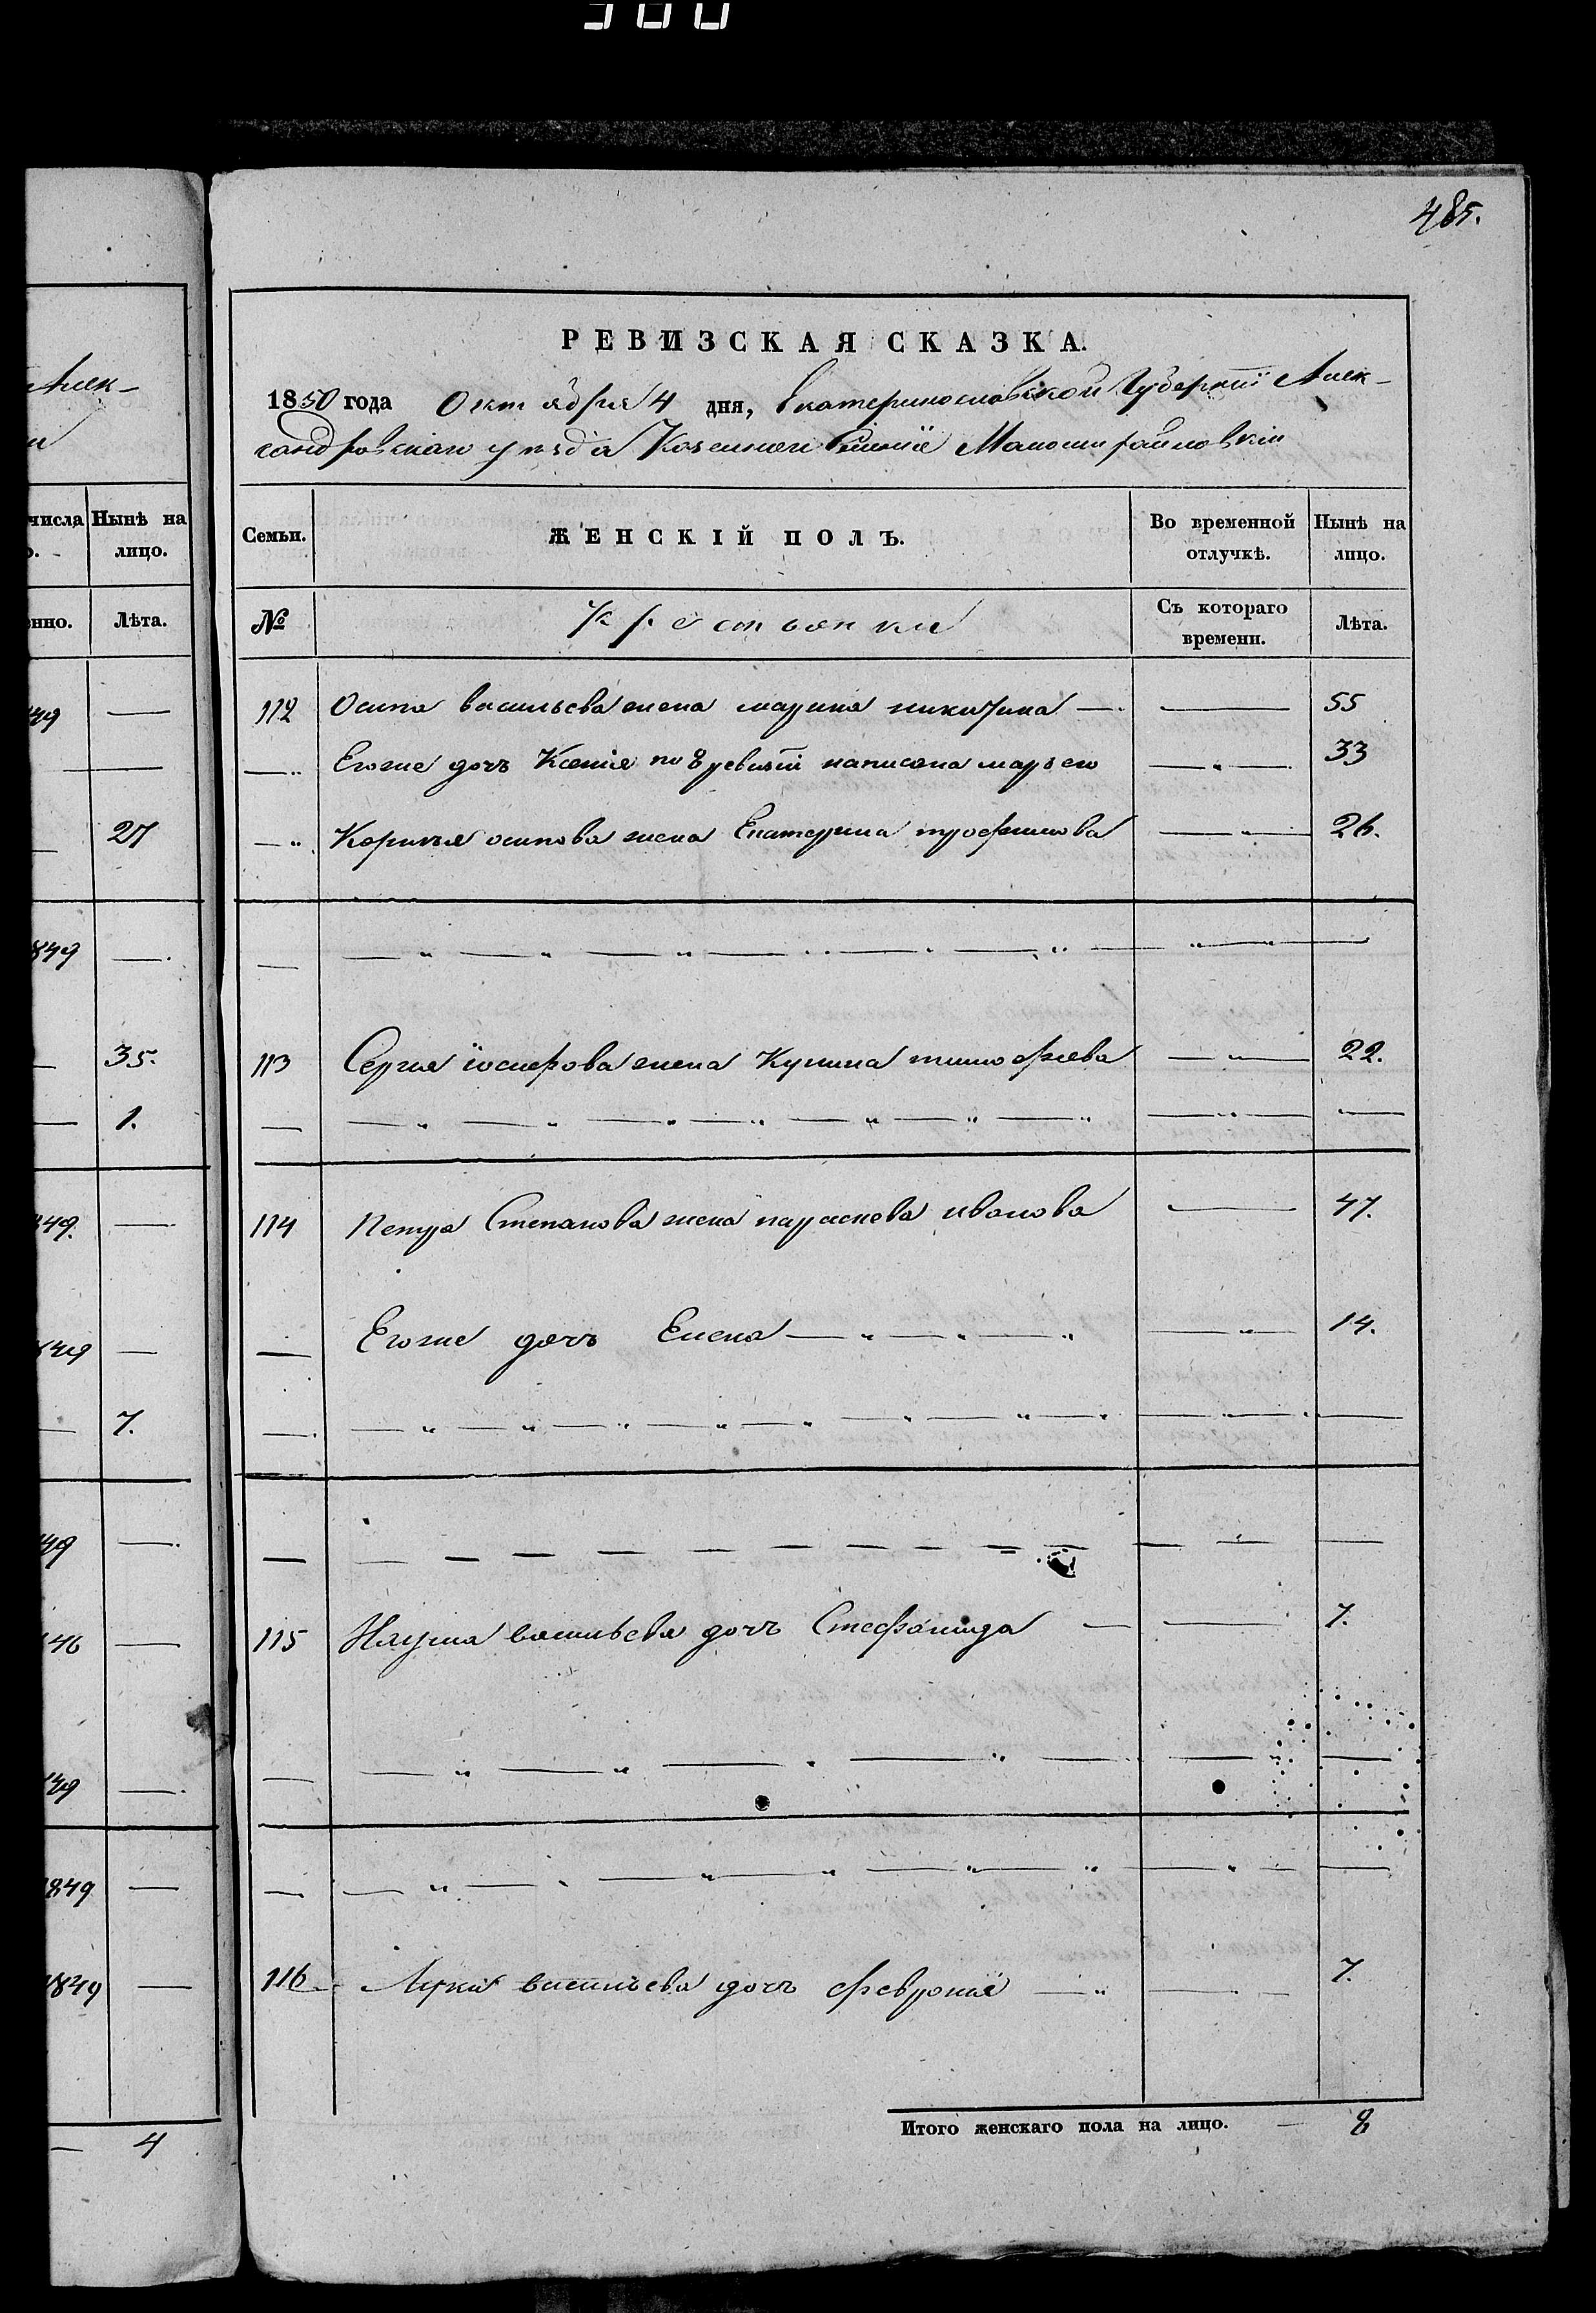 500
485.
Алек-
РЕВИЗСКАЯ СКАЗКА.
1850 года Октября 4 дня, Екатеринославской Губерніи Алек-
сандровскаго уезда Казенного Селенія
числа Нынѣ на
лицо.
нно. Лѣта.
Семьи. ЖЕНСКІЙ ПОЛЪ. Во временной отлучкѣ. Нынѣ на лицо.
№ Крестьянки Съ котораго времени. Лѣта.
49 —
27
849 —
35.
1.
849. —
849 —
7.
49 —
46 —
49 —
849 —
1849 —
— 4
112 Осипа васильева жена марина никитина — — 55
— Егоже дочь Ксенія по 8 ревизіи написана марьею — 33
— Корнея осипова жена Екатерина трофимова — 26.
113 Сергея іосифова жена Кулина тимофеева — 22.
114 Петра Степанова жена параскева иванова — 47.
— Егоже дочь Елена — — 14.
115 Наума васильева дочь Стефанида — — 7.
116 Луки васильева дочь февронія — — 7.
Итого женскаго пола на лицо. — 8